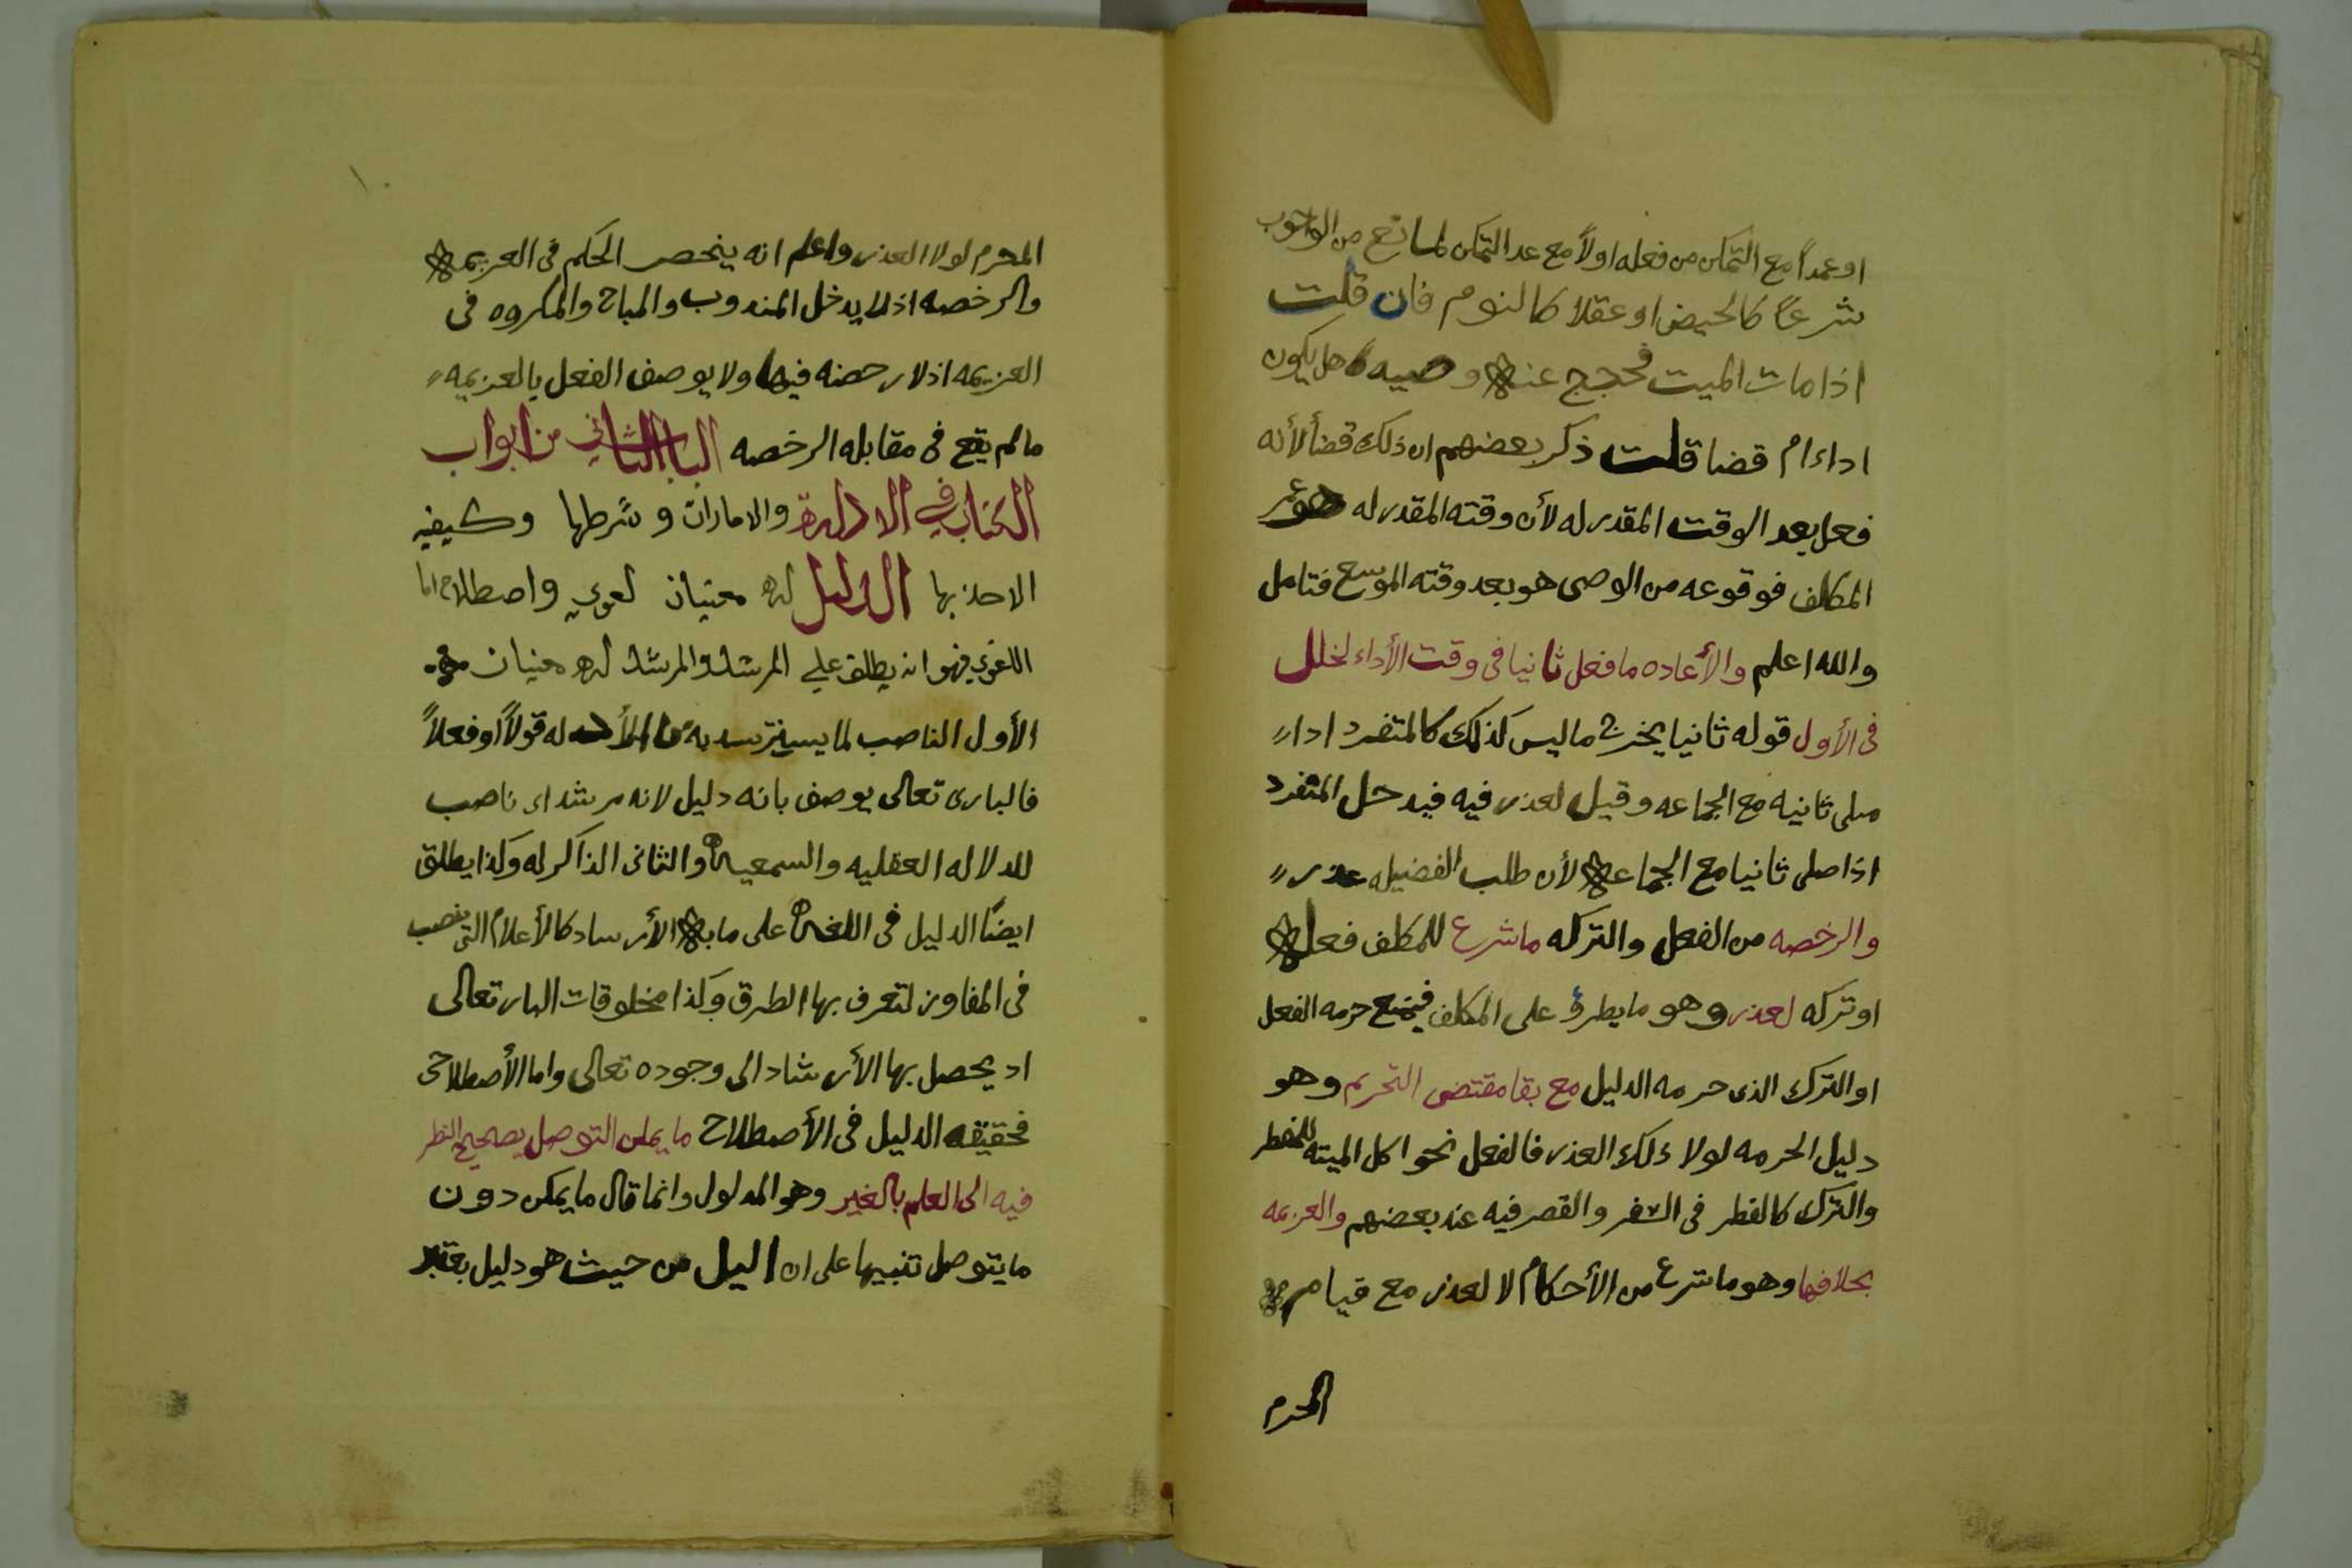 او عمداً مع التمكن من فعله اولاً مع عد التمكن لمانع من الوجوب
شرعاً كالحيض او عقلا كالنوم فان قلت
اذا مات الميت فحجج عنه وصيه هل يكون
اداء ام قضا قلت ذكر بعضهم ان ذلك قضأ لأنه
فعل بعد الوقت المقدر له لأن وقته المقدر له هو عمر
المكلف فوقوعه من الوصى هو بعد وقته الموسع فتامل
والله اعلم والأعاده ما فعل ثانيا فى وقت الأداء لخلل
فى الأول قوله ثانيا يخرج ما ليس كذلك كالمتفرد اداء
صلى ثانيه مع الجماعه وقيل لعذر فيه فيدخل المنفرد
اذا صلى ثانيا مع الجماعه لأن طلب الفضيله عذر
والرخصه من الفعل والتركه ما شرع للمكلف فعله
او تركه لعذر وهو ما يطرؤ على المكلف فيمنع حرمه الفعل
او الترك الذى حرمه الدليل مع بقا مقتضى التحريم وهو
دليل الحرمه لولا ذلك العذر فالفعل نحو اكل الميته للمضطر
والترك كالفطر فى السفر والقصر فيه عند بعضهم والعزيمه
بخلافها وهو ما شرع من الأحكام لا لعذر مع قيام
المحرم
المحرم لولا العذر واعلم انه ينحصر الحكم فى العزيمه
والرخصه اذ لا يدخل المندوب والمباح والمكروه فى
العزيمه اذ لا رخصه فيها ولا يوصف الفعل بالعزيمه
ما لم يقع فى مقابله الرخصه الباب الثاني من ابواب
الكتاب في الادلة والامارات وشرطها وكيفيه
الاخذ بها الدليل له معنيان لغوي واصطلاح اما
اللغوي فهو انه يطلق على المرشد والمرشد له معنيان
الأول الناصب لما يسترشد به له قولاً او فعلاً
فالبارى تعالى يوصف بانه دليل لانه مرشد اى ناصب
للدلاله العقليه والسمعيه والثانى الذاكر له وكذا يطلق
ايضًا الدليل فى اللغه على ما به الأرساد كالأعلام التى ينصب
فى المفاوز لتعرف بها الطرق وكذا مخلوقات البار تعالى
اد يحصل بها الأرشاد الى وجوده تعالى واما الأصطلاحى
فحقيقه الدليل فى الأصطلاح ما يمكن التوصل بصحيح النظر
فيه الى العلم بالغير وهو المدلول وانما قال ما يمكن دون
ما يتوصل تنبيها على ان اليل من حيث هو دليل يعتبر